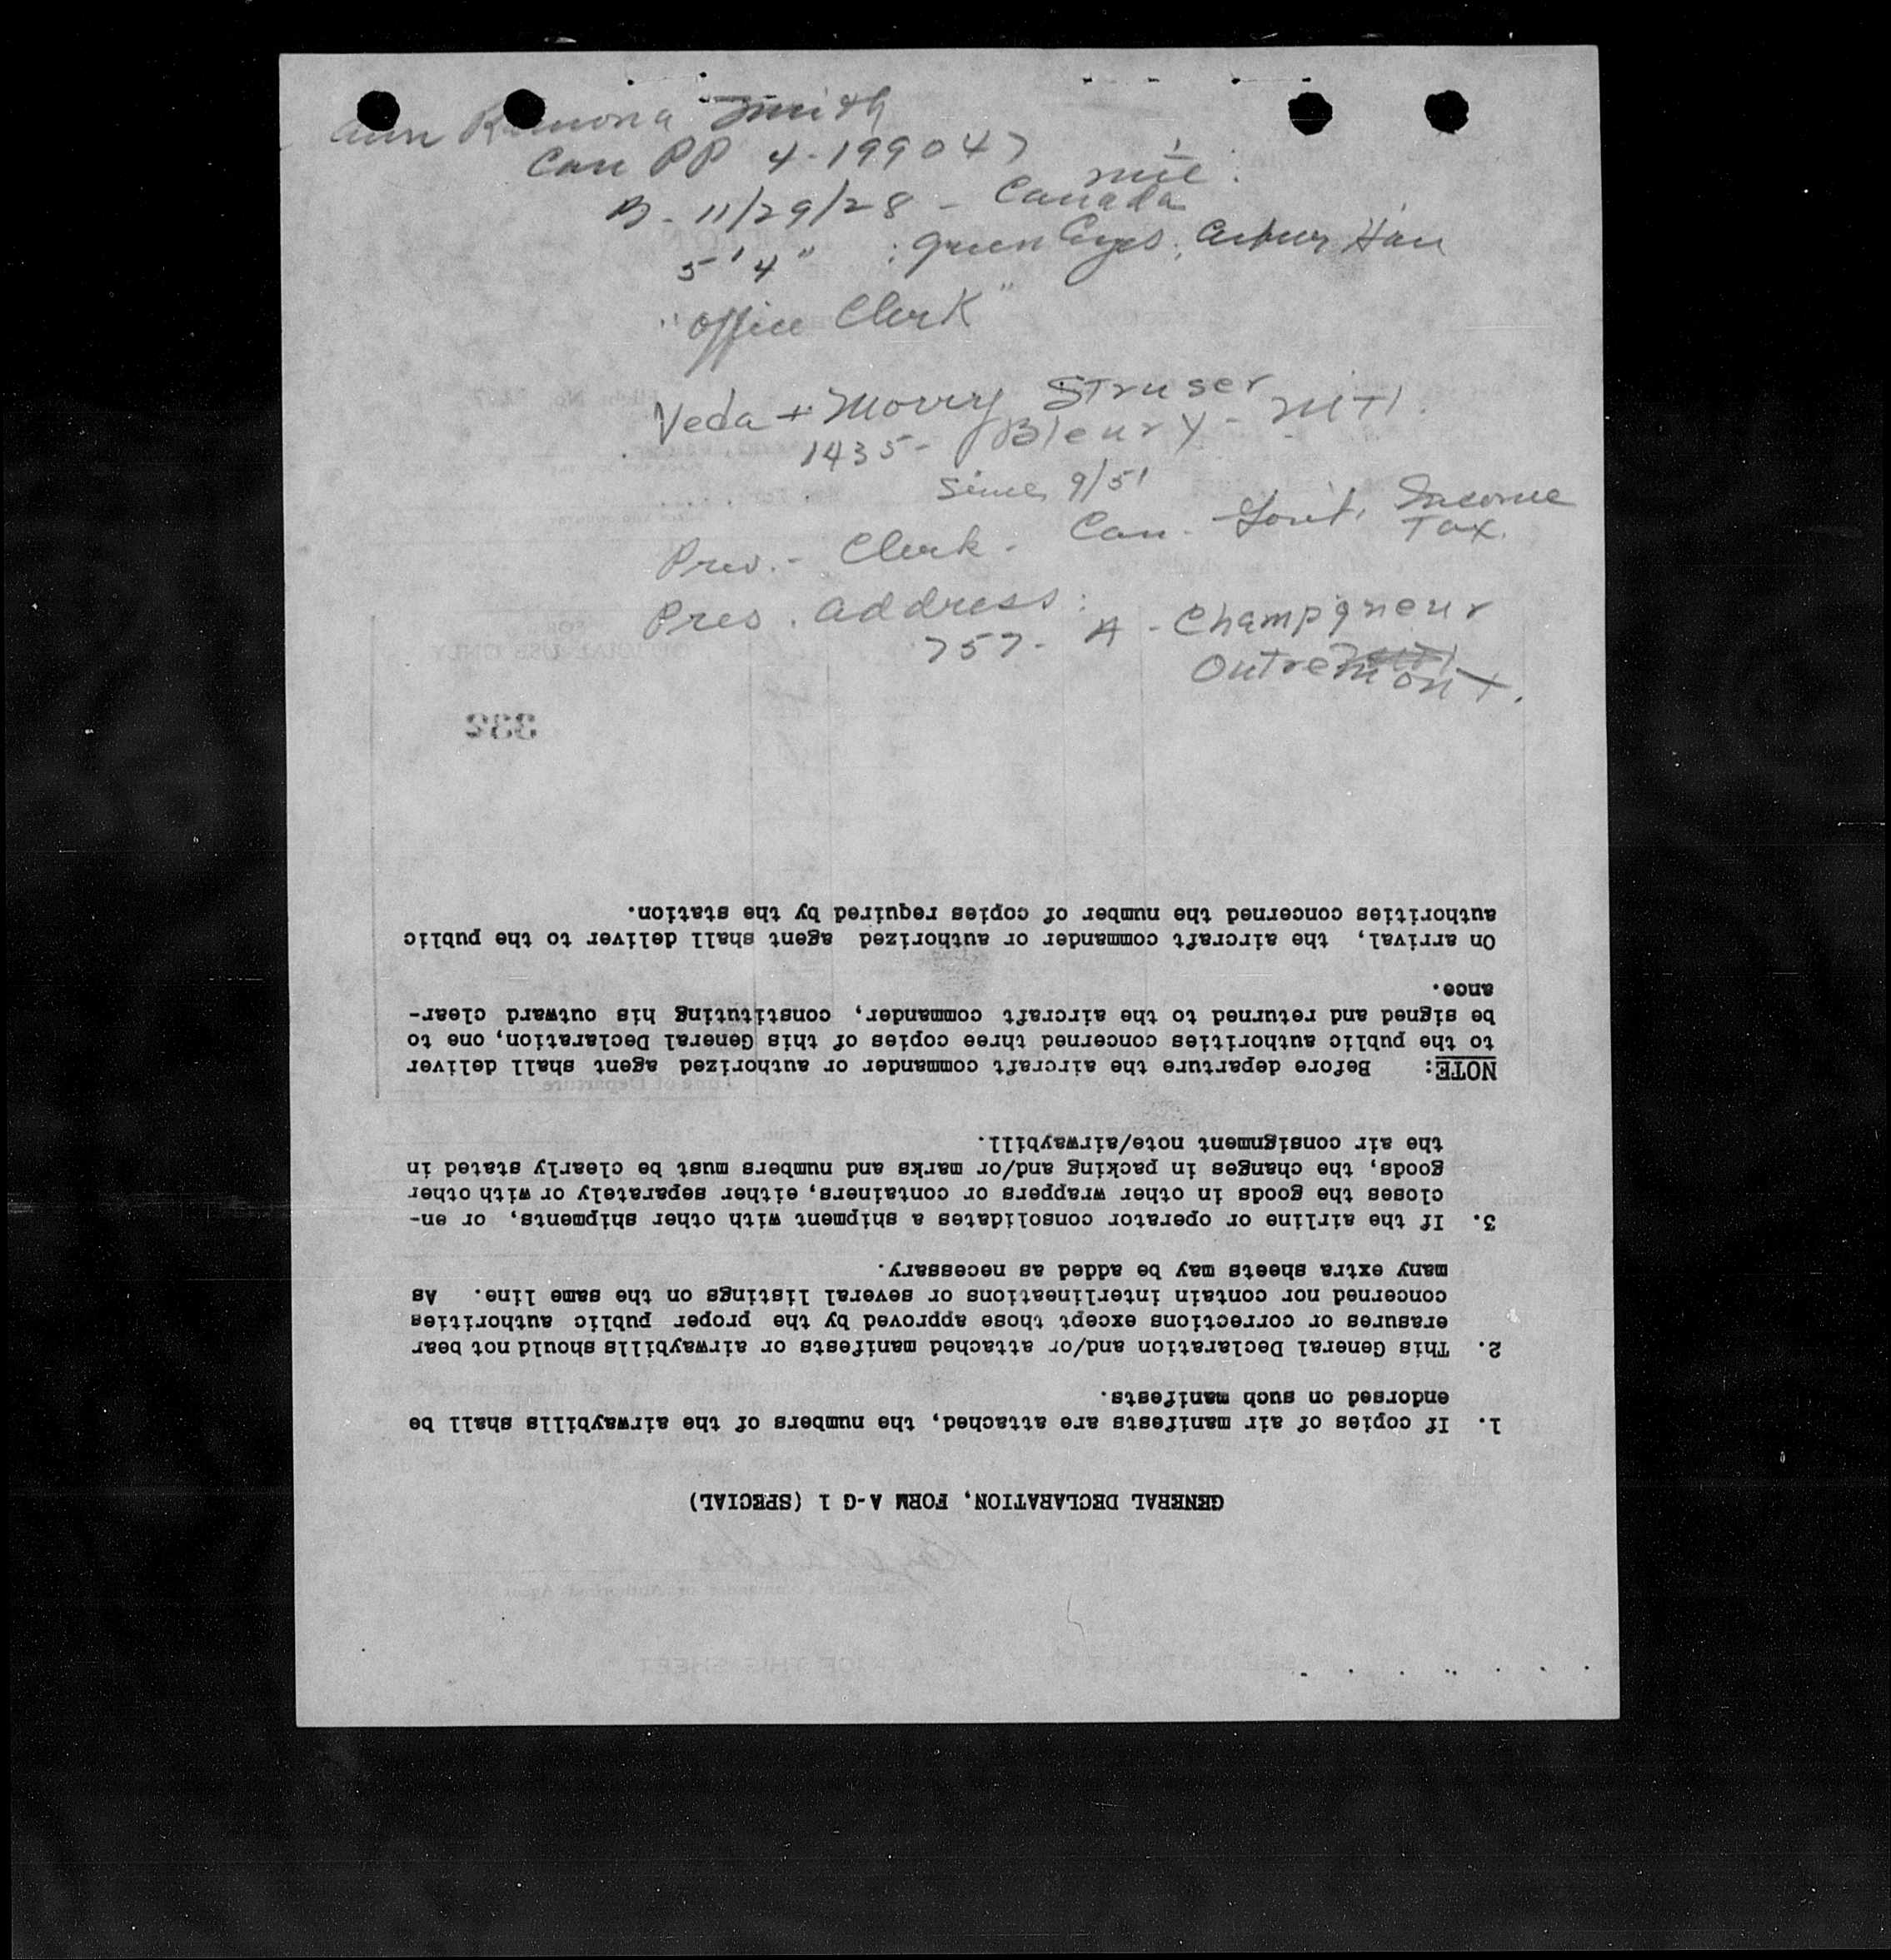 Ann Ramona Smith
Can PP 4-199047
B - 11/29/28 - Canada
5'4" : Green Eyes; Auburn Hair
"Office Clerk"
Veda + Morry Struser
1435 - Bleury - Mtl.
Since 9/51
Prev. - Clerk - Can. Gov't. Income Tax.
Pres. Address:
757 - A - Champigneur
Outremont.
332
GENERAL DECLARATION, FORM A-G 1 (SPECIAL)
1. If copies of air manifests are attached, the numbers of the airwaybills shall be
endorsed on such manifests.
2. This General Declaration and/or attached manifests or airwaybills should not bear
erasures or corrections except those approved by the proper public authorities
concerned nor contain interlineations or several listings on the same line. As
many extra sheets may be added as necessary.
3. If the airline or operator consolidates a shipment with other shipments, or en-
closes the goods in other wrappers or containers, either separately or with other
goods, the changes in packing and/or marks and numbers must be clearly stated in
the air consignment note/airwaybill.
NOTE: Before departure the aircraft commander or authorized agent shall deliver
to the public authorities concerned three copies of this General Declaration, one to
be signed and returned to the aircraft commander, constituting his outward clear-
ance.
On arrival, the aircraft commander or authorized agent shall deliver to the public
authorities concerned the number of copies required by the station.